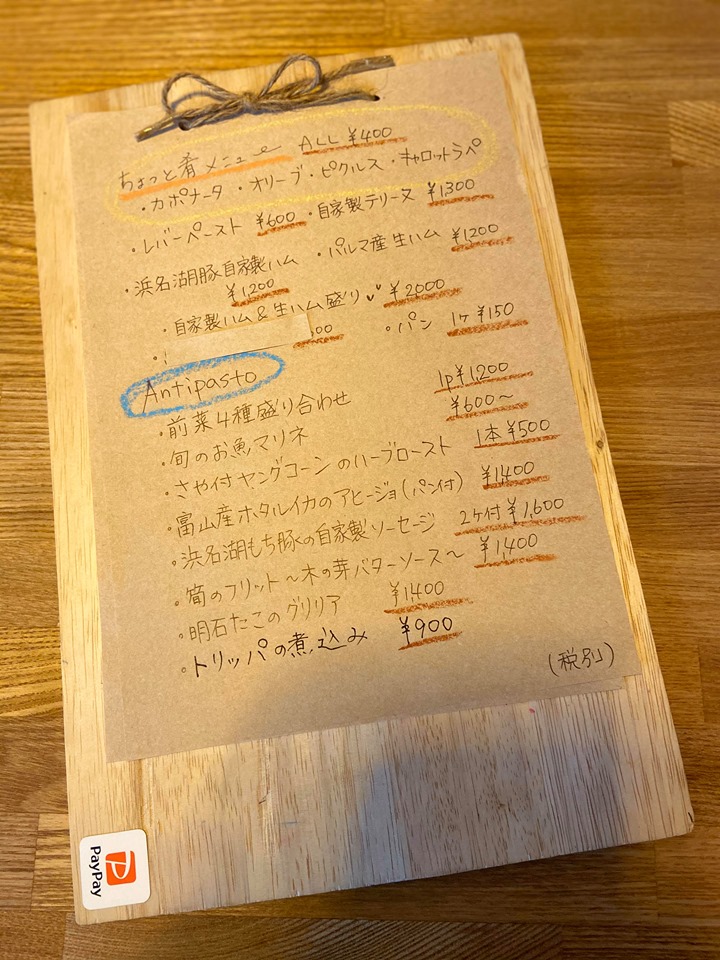 ちょっと肴メニュー ALL ¥400
・カポナータ ・オリーブ・ピクルス・キャロットラペ
・レバーペースト ¥600 ・自家製テリーヌ ¥1300
・浜名湖豚自家製ハム ・パルマ産生ハム ¥1200
¥1200
・自家製ハム&生ハム盛り ¥2000
・ 00 ・パン 1ケ ¥150
Antipasto
・前菜4種盛り合わせ 1p¥1200
・旬のお魚マリネ ¥600〜
・さや付ヤングコーンのハーブロースト 1本¥500
・富山産ホタルイカのアヒージョ(パン付) ¥1,400
・浜名湖もち豚の自家製ソーセージ 2ケ付¥1,600
・筍のフリット〜木の芽バターソース〜 ¥1,400
・明石たこのグリリア ¥1,400
・トリッパの煮込み ¥900
(税別)
PayPay